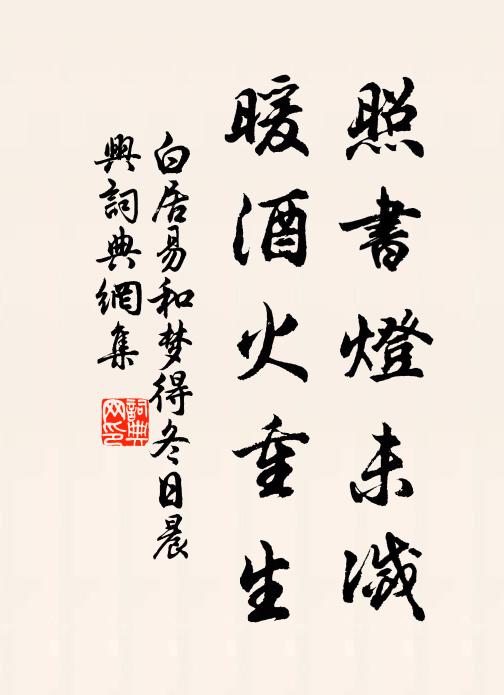 照書燈未滅
暖酒火重生
白居易和梦得冬日晨
興詞典網集
詞典
网印